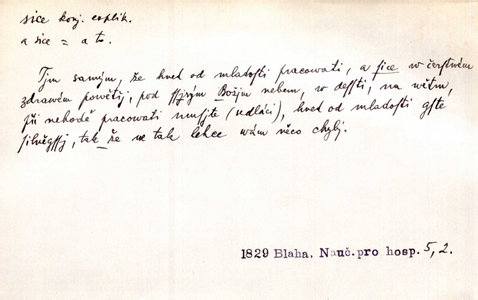 sice konj. explik.
a sice = a to.
Tjm samým, že hned od mladosti pracovati, a sice w čerstwém
zdrawém powětřj, pod ssjrým Božjm nebem, w dessti, na wětru,
při nehodě pracovati musjte (sedláci), hned od mladosti gste
silněgssj, tak že se tak lehce wám něco chybj.
1829 Blaha, Nauč.pro hosp. 5, 2.